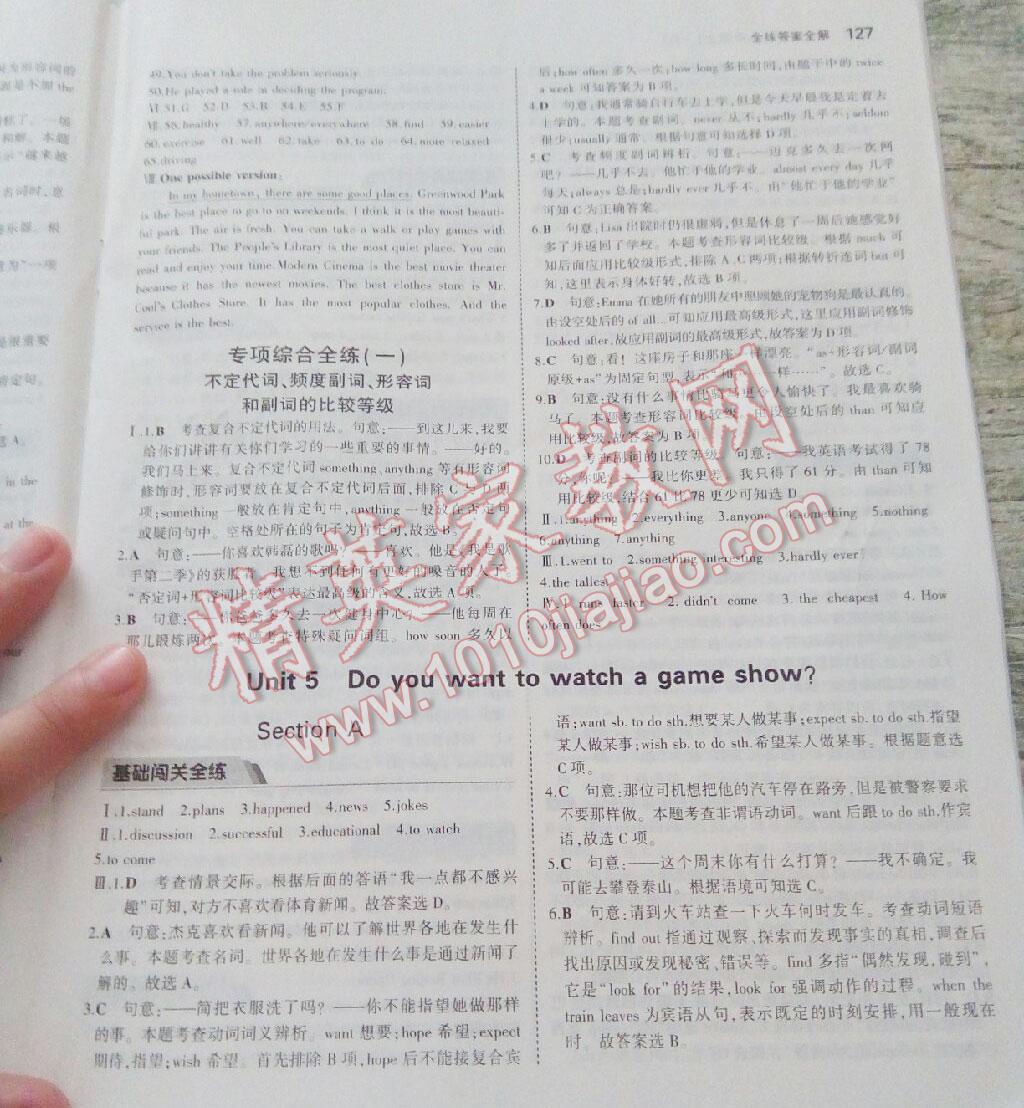 全练答案全解 127
49.You don't take the problem seriously.
50.He played a role in deciding the program.
Ⅵ 51.G 52.D 53.B 54.E 55.F
Ⅶ 56.healthy 57.anywhere/everywhere 58.find 59.easier
60.exercise 61.well 62.take 63.to do 64.more relaxed
65.driving
Ⅷ One possible version:
In my hometown, there are some good places. Greenwood Park
is the best place to go to on weekends. I think it is the most beauti-
ful park. The air is fresh. You can take a walk or play games with
your friends. The People's Library is the most quiet place. You can
read and enjoy your time. Modern Cinema is the best movie theater
because it has the newest movies. The best clothes store is Mr.
Cool's Clothes Store. It has the most popular clothes. And the
service is the best.
专项综合全练(一)
不定代词、频度副词、形容词
和副词的比较等级
Ⅰ.1.B 考查复合不定代词的用法。句意:——到这儿来,我要
给你们讲讲有关你们学习的一些重要的事情。——好的。
我们马上来。复合不定代词something、anything等有形容词
修饰时,形容词要放在复合不定代词后面,排除C、D两
项;something一般放在肯定句中,anything一般放在否定句
或疑问句中。空格处所在的句子为肯定句,故选B。
2.A 句意:——你喜欢韩磊的歌吗? 喜欢。他是《我是歌
手第二季》的获胜者。我想不到任何有更好的嗓音的人了。
“否定词+形容词比较级”表达最高级的含义,故选A项。
3.B 句意: 爸爸多久去一次健身中心?——他每周在
那儿锻炼两次。本题考查特殊疑问词组。how soon 多久以
后;how often 多久一次;how long 多长时间,由题干中的twice
a week可知答案为B项。
4.D 句意:我通常骑自行车去上学,但是今天早晨我是走着去
上学的。本题考查副词。never从不;hardly几乎不;seldom
很少;usually通常。根据句意可知选择D项。
5.C 考查频度副词辨析。句意:——迈克多久去一次网
吧?——几乎不去。他忙于他的学业。almost every day几乎
每天;always总是;hardly ever几乎不。由“他忙于他的学业”
可知C为正确答案。
6.B 句意:Lisa出院时仍很虚弱,但是休息了一周后她感觉好
多了并返回了学校。本题考查形容词比较级。根据much可
知后面应用比较级形式,排除A、C两项;根据转折连词but可
知,这里表示身体好转,故选B项。
7.D 句意:Emma在她所有的朋友中照顾她的宠物狗是最认真的。
由设空处后的of all...可知应用最高级形式,这里应用副词修饰
looked after,故应用副词的最高级形式,故答案为D项。
8.C 句意:看!这座房子和那座一样漂亮。“as+形容词/副词
原级+as”为固定句型,表示“和……一样……”。故选C。
9.B 句意:没有什么事情比骑马更令人愉快了。我最喜欢骑
马了。本题考查形容词比较级。由设空处后的than可知应
用比较级,故答案为B项。
10.D 考查副词的比较等级。句意:——我英语考试得了78
分,你呢? 我比你更差。我只得了61分。由than可知
用比较级,结合61比78更少可知选D
Ⅱ.1.anything 2.everything 3.anyone 4.something 5.nothing
6.anything 7.anything
Ⅲ.1.went to 2.something interesting 3.hardly ever
4.the tallest
Ⅳ.1. runs faster 2. didn't come 3. the cheapest 4. How
often does
Unit 5 Do you want to watch a game show?
Section A
基础闯关全练
Ⅰ.1.stand 2.plans 3.happened 4.news 5.jokes
Ⅱ.1.discussion 2.successful 3.educational 4.to watch
5.to come
Ⅲ.1.D 考查情景交际。根据后面的答语“我一点都不感兴
趣”可知,对方不喜欢看体育新闻。故答案选D。
2.A 句意:杰克喜欢看新闻。他可以了解世界各地在发生什
么事。本题考查名词。世界各地在发生什么事是通过新闻了
解的。故选A。
3.C 句意:——简把衣服洗了吗?——你不能指望她做那样
的事。本题考查动词词义辨析。want想要;hope希望;expect
期待,指望;wish希望。首先排除B项,hope后不能接复合宾
语;want sb. to do sth.想要某人做某事;expect sb. to do sth.指望
某人做某事;wish sb. to do sth.希望某人做某事。根据题意选
C项。
4.C 句意:那位司机想把他的汽车停在路旁,但是被警察要求
不要那样做。本题考查非谓语动词。want后跟to do sth.作宾
语,故选C项。
5.C 句意:——这个周末你有什么打算?——我不确定。我
可能去攀登泰山。根据语境可知选C。
6.B 句意:请到火车站查一下火车何时发车。考查动词短语
辨析。find out指通过观察,探索而发现事实的真相,调查后
找出原因或发现秘密,错误等。find多指“偶然发现,碰到”,
它是“look for”的结果,look for强调动作的过程。when the
train leaves为宾语从句,表示既定的时刻安排,用一般现在
时。故答案选B。
精英家教网
www.1010jiajiao.com